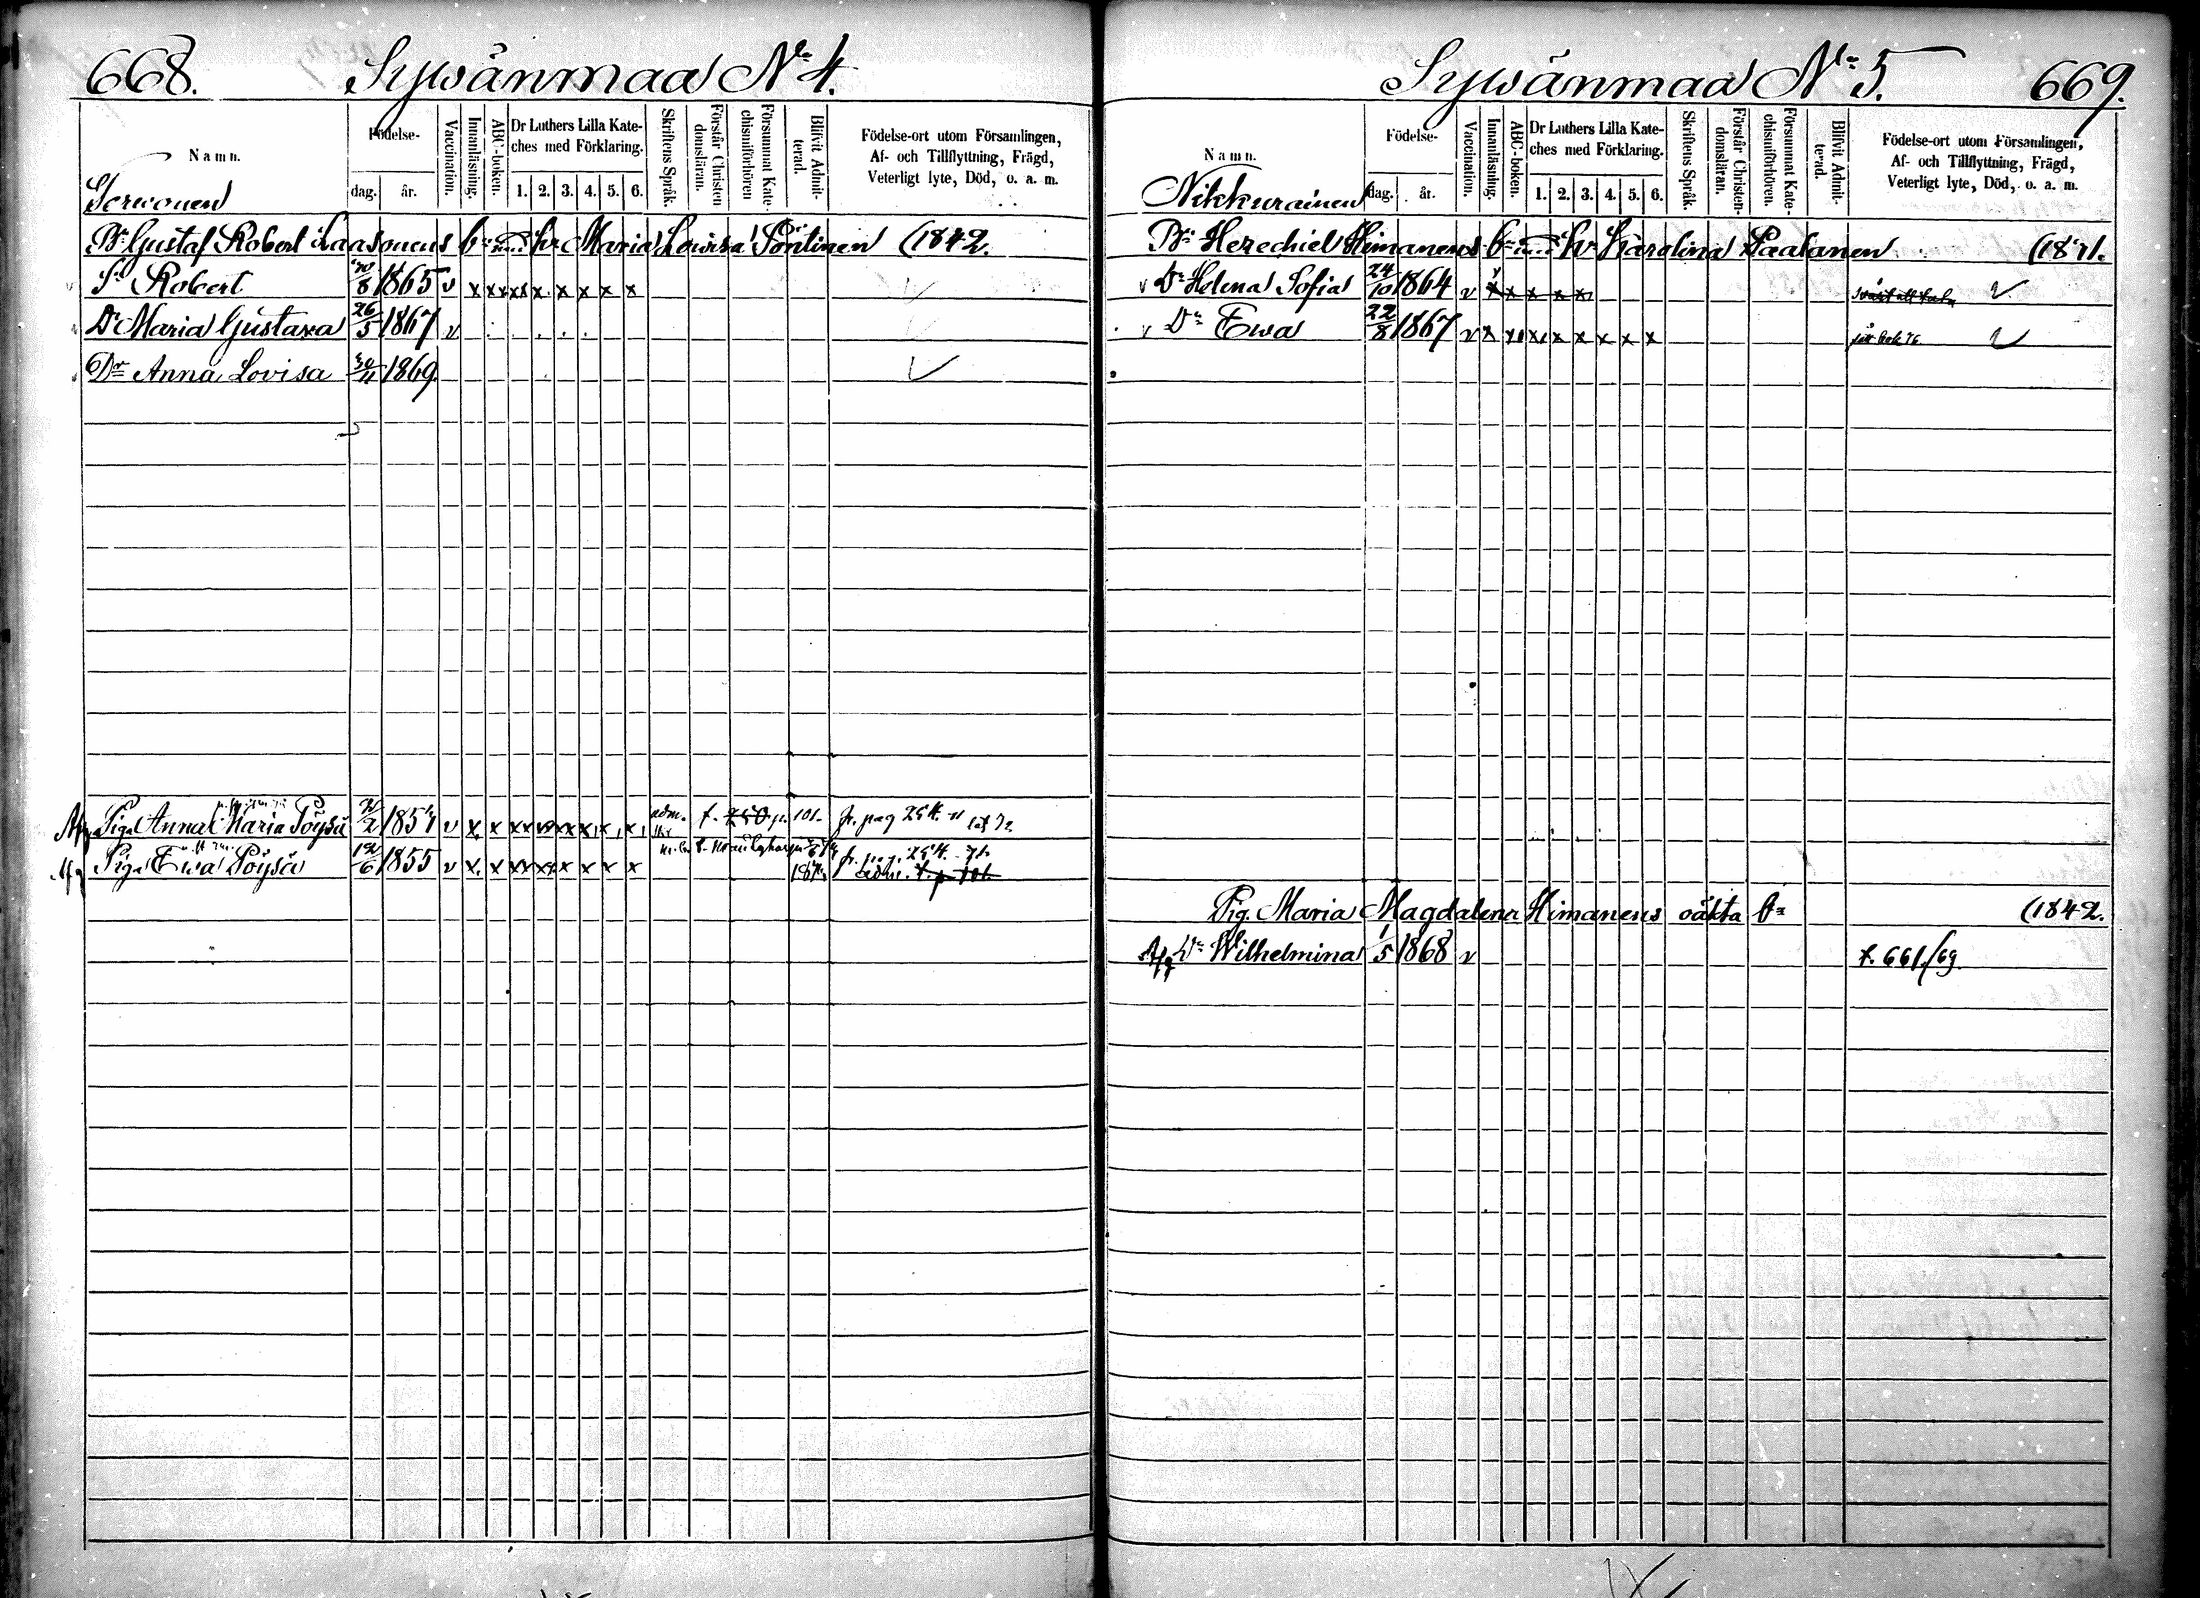 668. Sywänmaa N:o 4.
Namn.
Födelse-
dag.
år.
Vaccination.
Innanläsning.
ABC-boken.
Dr Luthers Lilla Kate-
ches med Förklaring.
1. 2. 3. 4. 5. 6.
Skriftens Språk.
Förstår Christen
domsläran.
Försummat Kate-
chismiförhören
Blifvit Admit-
terad.
Födelse-ort utom Församlingen,
Af- och Tillflyttning, Frägd,
Veterligt lyte, Död, o. a. m.
Serwonen
Bd Gustaf Robert Laasonens b: m. h: Maria Lovisa (1842.
Sn Robert 1865 v x x x x x x x x x
Dr Maria Gustava 26/5 1867 v
Dr Anna Lovisa 30/11 1869
Afg Pig. Anna Maria Pöysä 1854 v x x x x x x x x adm. t. 250 p. 101. fr. pag 254
Afg Pig. Ewa Pöysä 1855 v x x x x x x x x fr. pag. 254
Sywänmaa N:o 5. 669.
Namn.
Födelse-
dag.
år.
Vaccination.
Innanläsning.
ABC-boken.
Dr Luthers Lilla Kate-
ches med Förklaring.
1. 2. 3. 4. 5. 6.
Skriftens Språk.
Förstår Christen-
domsläran.
Försummat Kate-
chismiförhören.
Blifvit Admit-
terad.
Födelse-ort utom Församlingen,
Af- och Tillflyttning, Frägd,
Veterligt lyte, Död, o. a. m.
Nikkurainen
Bd Hezechiel Himanens b: m. h: Karolina Paalanen
v Dr Helena Sofia 24/10 1864 v x x x x x svårt att tala v
v Dr Ewa 22/8 1867 v x x x x x x x x v
Pig. Maria Magdalena Himanens oäkta b: (1842.
Afg Dr Wilhelmina 1/5 1868 v t. 661/69.